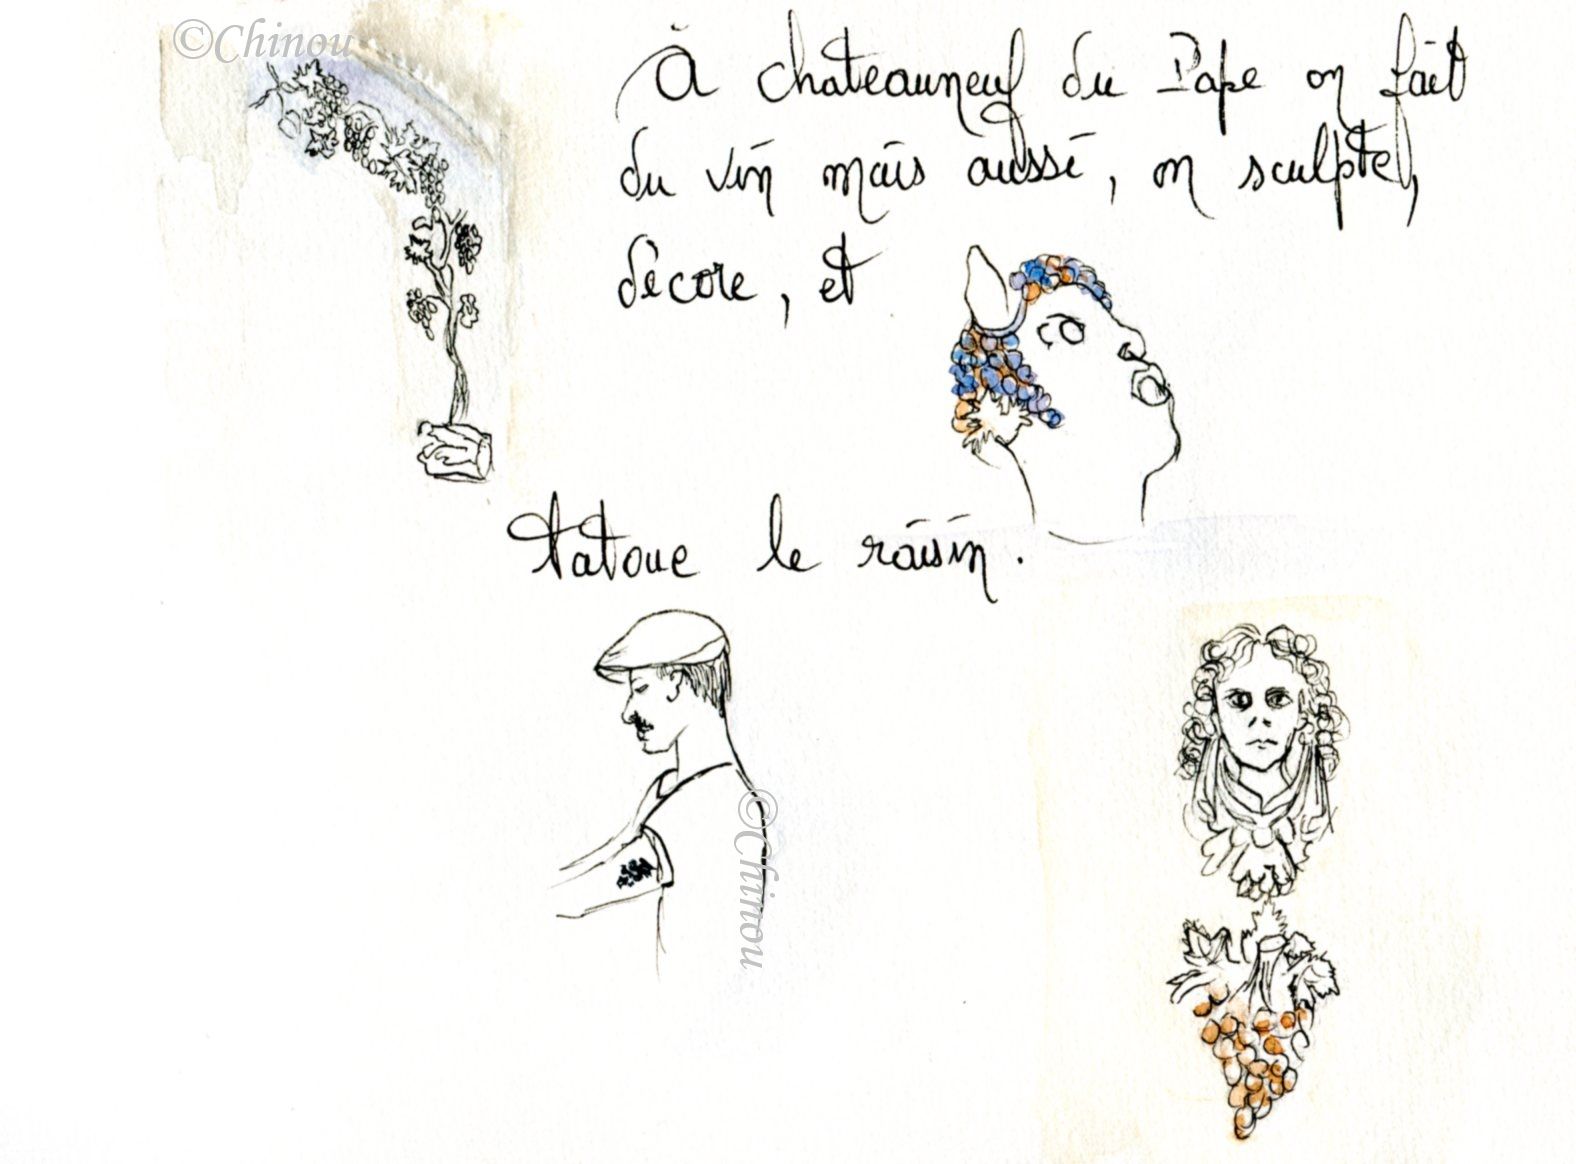 ©Chinou
À chateauneuf du Pape on fait
du vin mais aussi, on sculpte,
décore, et
tatoue le raisin.
©Chinou